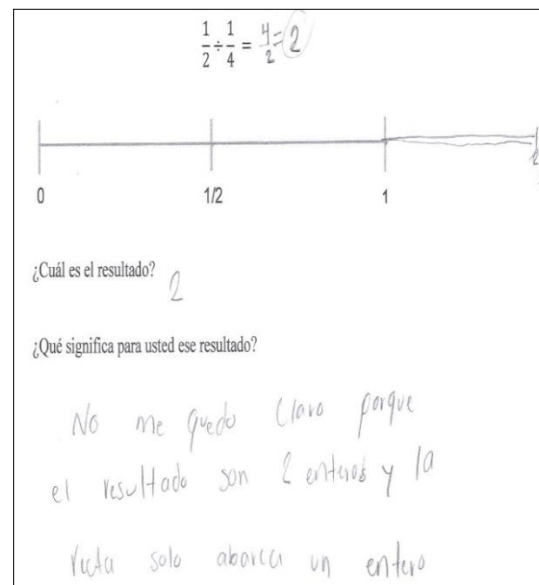 1/2 ÷ 1/4 = 4/2 = 2
0 1/2 1 2
¿Cuál es el resultado? 2
¿Qué significa para usted ese resultado?
No me quedo claro porque
el resultado son 2 enteros y la
recta solo abarca un entero